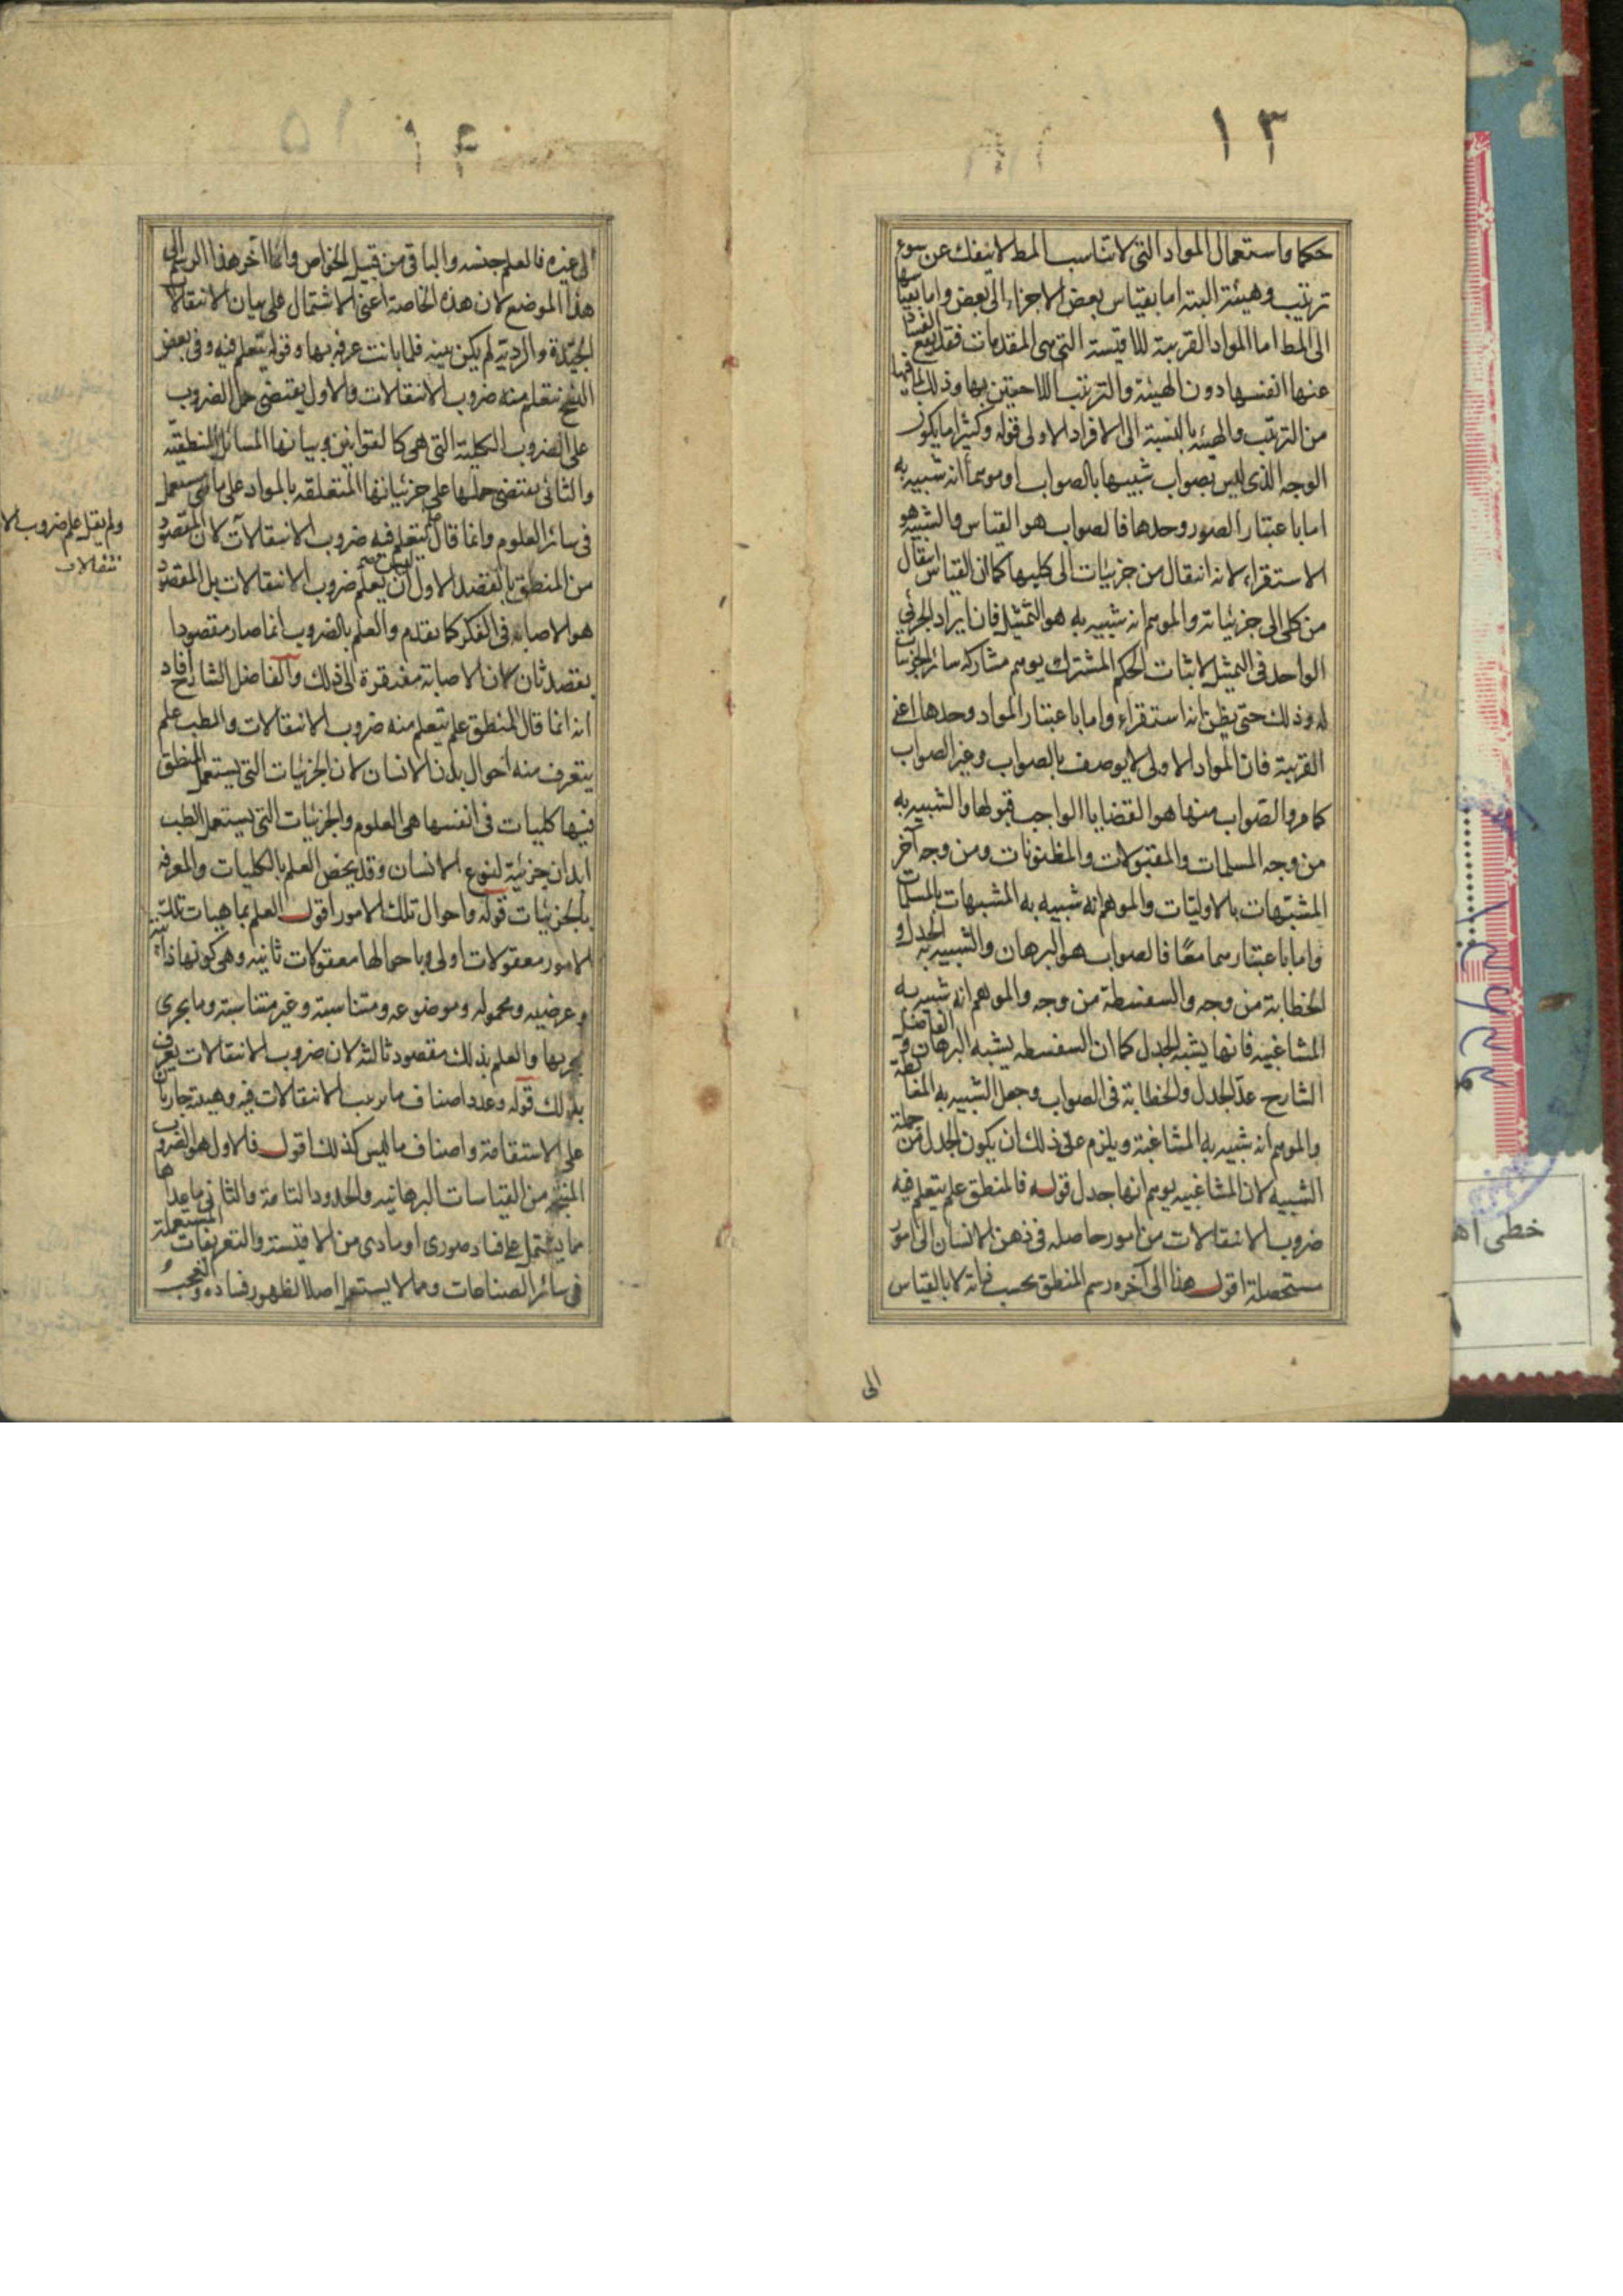 ١٣
حكما واستعمال المواد التى لا تناسب المط لا ينفك عن سوء
ترتيب وهيئة البتة اما بقياس بعض الاجزاء الى بعض واما بقياسها
الى المط اما المواد القريبة للاقيسة التى هى المقدمات فقد يقع الفساد
عنها انفسها دون الهيئة والترتيب اللاحقين بها وذلك لما فيها
من الترتيب والهيئة بالنسبة الى الافراد الاولى قوله وكثيرا ما يكون
الوجه الذى ليس بصواب شبيها بالصواب او موهما انه شبيه به
اما باعتبار الصور وحدها فالصواب هو القياس والشبيه هو
الاستقراء لانه انتقال من جزئيات الى كليها كما ان القياس انتقال
من كلى الى جزئياته والموهم انه شبيه به هو التمثيل فان ايراد الجزئى
الواحد فى التمثيل لاثبات الحكم المشترك يوهم مشاركة سائر الجزئيات
له وذلك حتى يظن انه استقراء واما باعتبار المواد وحدها اعنى
القريبة فان المواد الاولى لا يوصف بالصواب وغير الصواب
كما مر والصواب منها هو القضايا الواجب قبولها والشبيه به
من وجه المسلمات والمقبولات والمظنونات ومن وجه آخر
المشبهات بالاوليات والموهم انه شبيه به المشبهات بالمسلمات
واما باعتبارهما معًا فالصواب هو البرهان والشبيه به الجدل و
الخطابة من وجه والسفسطة من وجه والموهم انه شبيه به
المشاغبيه فانها يشبه الجدل كما ان السفسطه يشبه البرهان والفاضل
الشارح عدّ الجدل والخطابة فى الصواب وجعل الشبيه به المغالطة
والموهم انه شبيه به المشاغبة ويلزم على ذلك ان يكون الجدل من جملة
الشبيه لان المشاغبيه يوهم انها جدل قوله فالمنطق علم يتعلم فيه
ضروب الانتقالات من امور حاصله فى ذهن الانسان الى امور
مستحصلة اقول هذا الى آخره رسم المنطق بحسب ذاته لا بالقياس
الى
١٤
الى غيره فالعلم جنسه والباقى من قبيل الخواص وانما آخر هذا الرسم الى
هذا الموضع لان هذه الخاصة اعنى الاشتمال على بيان الانتقالات
الجيّدة والردية لم يكن بينه فلما بانت عرفه بها وقوله يتعلم فيه وفى بعض
النسخ يتعلم منه ضروب الانتقالات والاول يقتضى حمل الضروب
على الضروب الكلية التى هى كالقوانين وبيانها المسائل المنطقيّة
والثانى يقتضى حملها على جزئياتها المتعلقه بالمواد على ما هى مستعمل
فى سائر العلوم وانما قال علم يتعلم فيه ضروب الانتقالات لان المقصود
من المنطق بالقصد الاول ليس ان يعلم ضروب الانتقالات بل المقصود
هو الاصابه فى الفكر كما تقدم والعلم بالضروب انما صار مقصودا
بقصد ثان لان الاصابة مفتقرة الى ذلك والفاضل الشارح افاد
انه انما قال المنطق علم يتعلم منه ضروب الانتقالات والطب علم
يتعرف منه احوال بدن الانسان لان الجزئيات التى يستعمل المنطق
فيها كليات فى انفسها هى العلوم والجزئيات التى يستعمل الطب
ابدان جزئية لنوع الانسان وقد يخص العلم بالكليات والمعرفه
بالجزئيات قوله واحوال تلك الامور اقول العلم بماهيات تلك
الامور معقولات اولى وباحوالها معقولات ثانيه وهى كونها ذاتية
وعرضيه ومحموله وموضوعه ومتناسبة وغير متناسبة وما يجرى
مجريها والعلم بذلك مقصود ثالثه لان ضروب الانتقالات يعرف
بذلك قوله وعدد اصناف ما ترتيب الانتقالات فيه وهيئته جاريان
على الاستقامة واصناف ما ليس كذلك اقول فالاول هو الضروب
المنتجه من القياسات البرهانيه والحدود التامة والثانى ما عداها
مما يشتمل على فساد صورى او مادى من الاقيسة والتعريفات المستعملة
فى سائر الصناعات ومما لا يستعمل اصلا لظهور فساده
ولم يقل علم ضروب الا
نتقالات
خطى